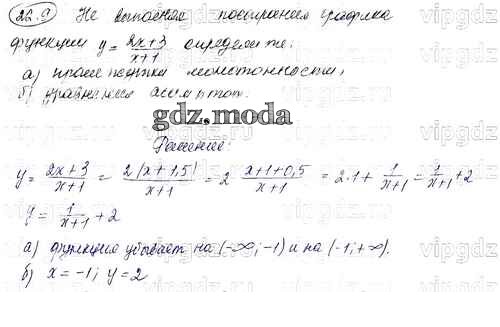 22.9 Не выполняя построения графика
функции y = 2x+3/x+1 определите:
а) промежутки монотонности,
б) уравнения асимптот.
gdz.moda
Решение:
y = 2x+3/x+1 = 2(x+1,5)/x+1 = 2 x+1+0,5/x+1 = 2·1 + 1/x+1 = 1/x+1 + 2
y = 1/x+1 + 2
а) функция убывает на (-∞; -1) и на (-1; +∞).
б) x = -1; y = 2